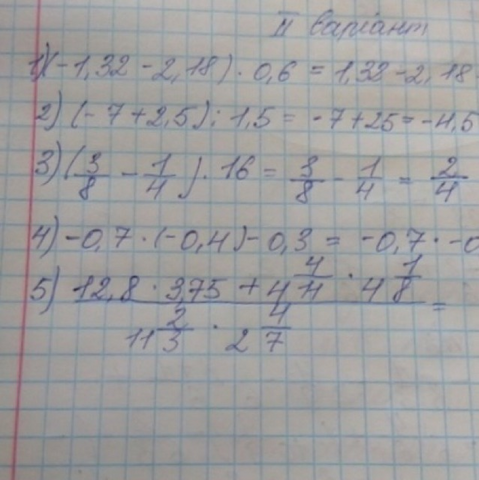 II варіант
1)(-1,32-2,18)·0,6=1,32-2,18
2) (-7+2,5):1,5=-7+25=-4,5
3)(3/8-1/4)·16=3/8-1/4=2/4
4)-0,7·(-0,4)-0,3=-0,7·-0
5) (12,8·3,75+4 4/11·4 1/8)/(11 2/3·2 4/7)=